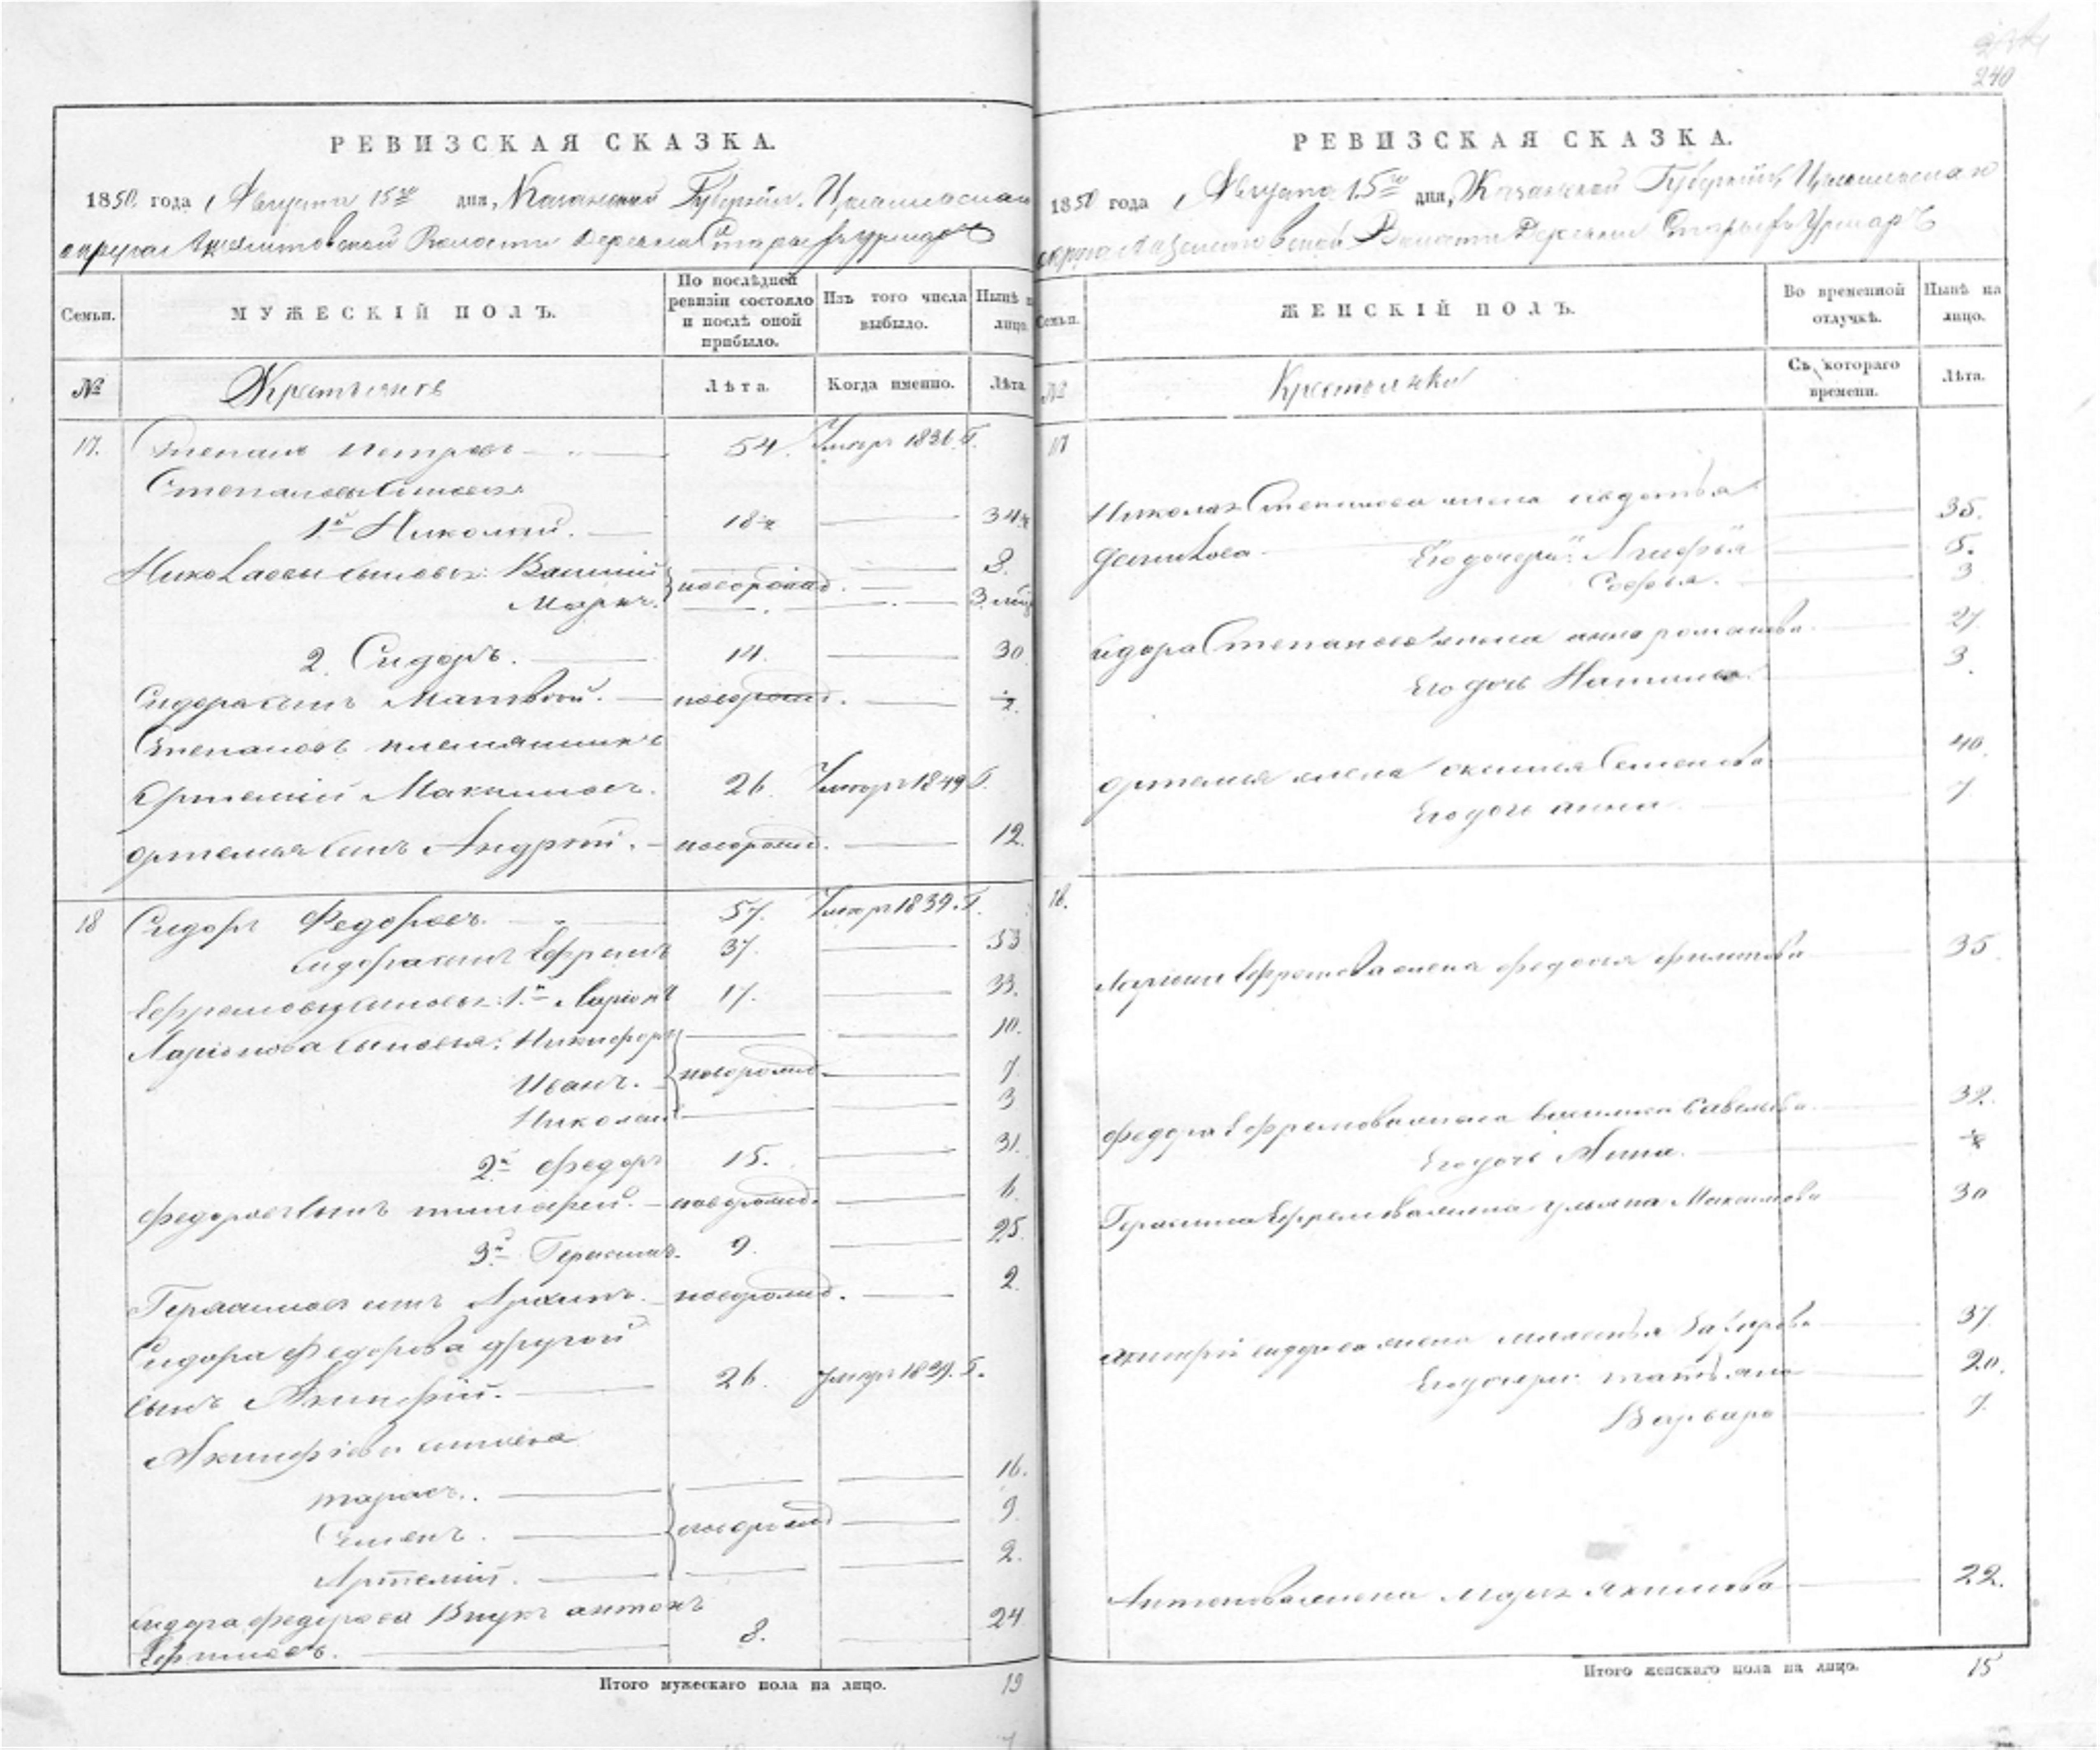 240
РЕВИЗСКАЯ СКАЗКА.
1850 года Августа 15го дня, Казанской Губернии, Цивильскаго
округа Волости Деревни Старыхъ Урмаръ
Семьи.
МУЖЕСКІЙ ПОЛЪ.
По послѣдней ревизіи состояло и послѣ оной прибыло.
Изъ того числа выбыло.
Нынѣ на лицо.
№
Крестьяне
Лѣта.
Когда именно.
Лѣта
17. Степанъ Петровъ 54. Умеръ 1836. Г.
Степановы сыновья
1й Николай. 18½ 34½
Николаевы сыновья: Василій новорожд. 8.
Марко. 3 мѣс
2. Сидоръ. 14. 30
Сидора сынъ Матвѣй. новорожд. ½.
Степановъ племянникъ
Артемій Максимовъ. 26. Умеръ 1849 Г.
Артемья сынъ Андрей. новорожд. 12.
18 Сидоръ Федоровъ. 57. Умеръ 1839. Г.
Сидора сынъ Ефремъ 37. 53
Ефремовы сыновья: 1й Ларіонъ 17. 33.
Ларіонова сыновья: Никифоръ 10.
Иванъ. новорожд. 7
Николай 3
2й Федоръ 15. 31.
Федоровъ сынъ Тимофей. новорожд. 6.
3й Герасимъ. 9. 25.
Герасимовъ сынъ Архипъ. новорожд. 2.
Сидора Федорова другой
сынъ Акинфій. 26. Умеръ 1849. Г.
Акинфіева сыновья
Тарасъ. 16.
Семенъ. новорожд 9.
Артемій. 2.
Сидора Федорова Внукъ Антонъ
8. 24
Итого мужескаго пола на лицо. 19
РЕВИЗСКАЯ СКАЗКА.
1850 года Августа 15го дня, Казанской Губерніи, Цивильскаго
округа Волости Деревни Старыхъ Урмаръ
Семьи.
ЖЕНСКІЙ ПОЛЪ.
Во временной отлучкѣ.
Нынѣ на лицо.
№
Крестьянки
Съ котораго времени.
Лѣта.
17
Николая Степанова жена Федотья
35.
Его дочери: Агафья 5.
Софья. 3
Сидора Степанова жена Анна Романова. 27
Его дочь Наталья. 3.
Артемья жена Семенова 40.
Его дочь Анна 7
18.
Ларіона Ефремова жена Федосья Филипова 35
Федора Ефремова жена Василиса Савельева 32.
Его дочь Анна. ½
Герасима Ефремова жена Ульяна Максимова 30
Акинфій Сидорова жена Захарова 37.
Его дочери: Татьяна 20.
Варвара 7.
Антонова жена Марья Якимова 22.
Итого женскаго пола на лицо. 15